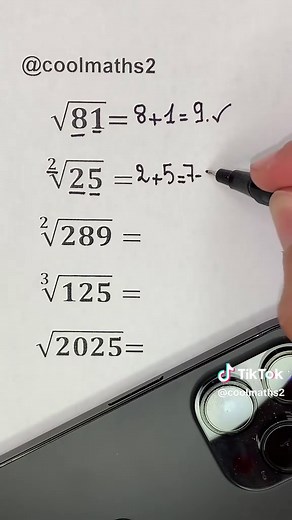 @coolmaths2
√81= 8+1=9.✓
²√25 = 2+5=7-
²√289 =
³√125 =
√2025=
TikTok
@coolmaths2